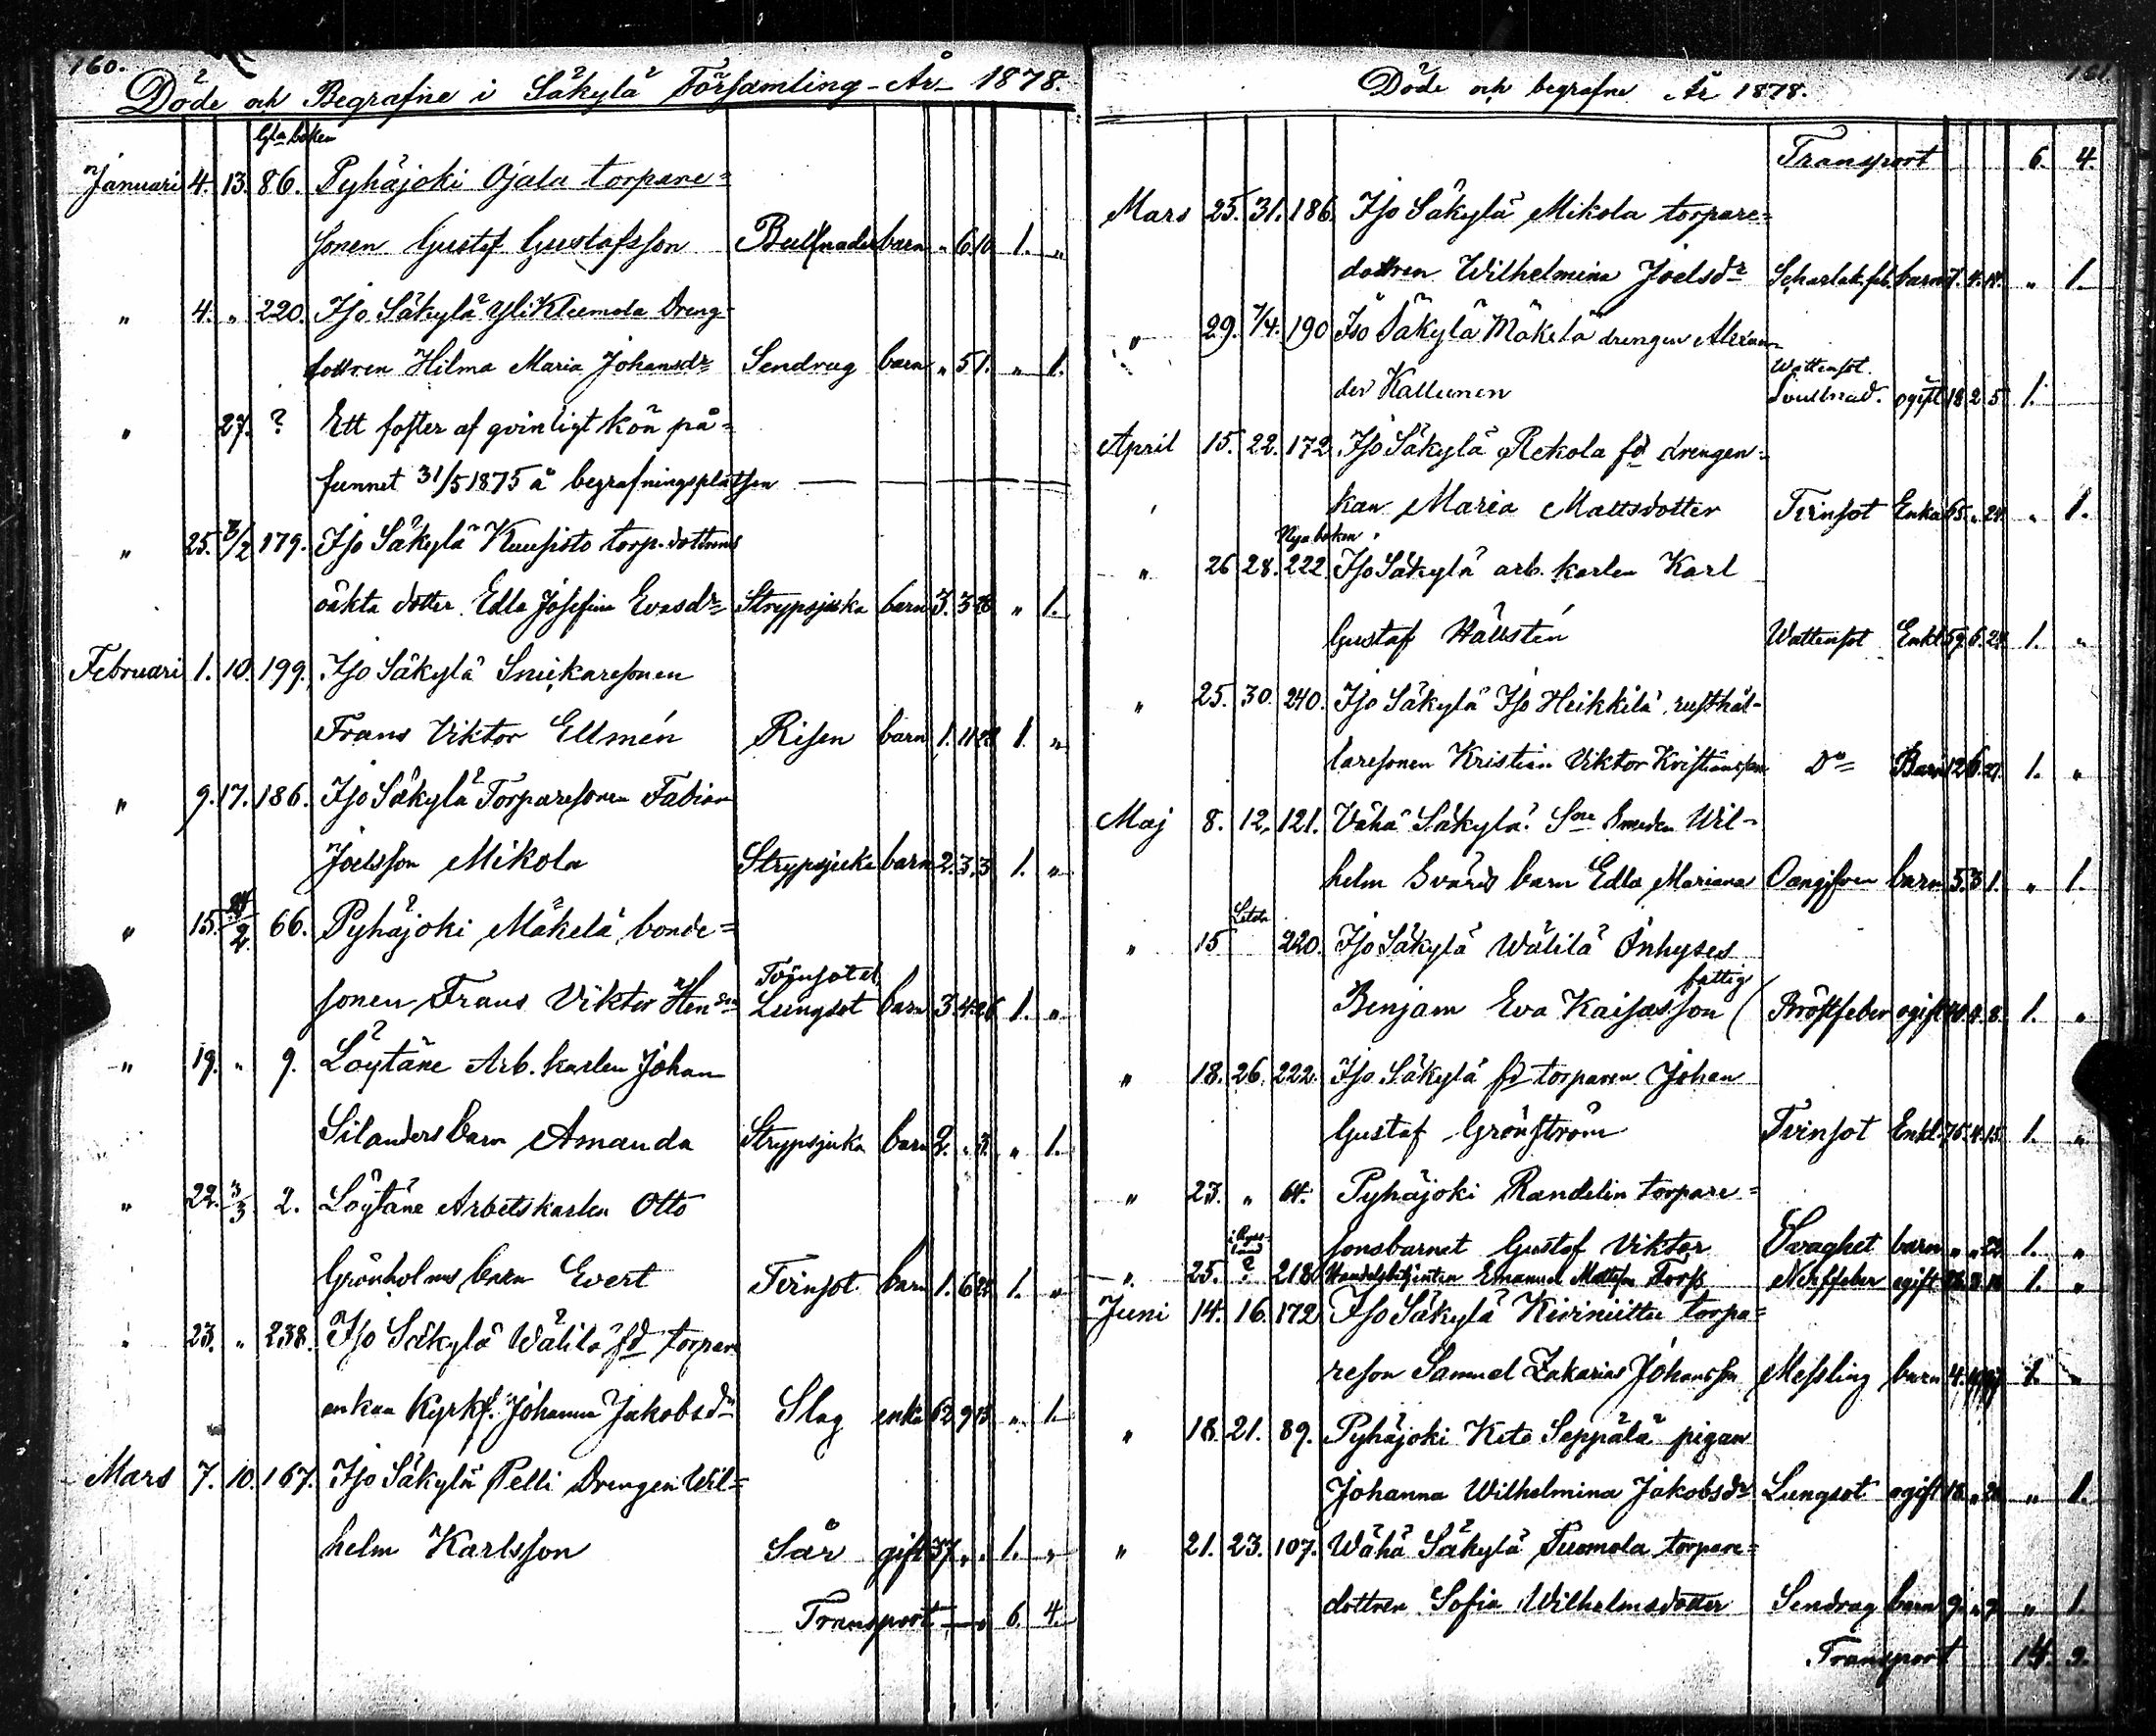 160.
Döde och Begrafne i Säkylä Församling - År - 1878.
Gla boken
Januari 4. 13. 86. Pyhäjoki Ojala torpare=
sonen Gustaf Gustafsson Bullnader barn „ 6. 10 1. „
„ 4. „ 220. Iso Säkylä Yli Kleemola Dreng-
dottren Hilma Maria Johansdr Sendrag barn „ 5 1. „ 1.
„ 27. ? Ett foster af qvinligt kön på=
funnet 31/5 1875 å begrafningsplatsen
„ 25. 3/2 179. Iso Säkylä Kuusisto torp. dottrens
oäkta dotter Edla Josefina Evasdr Strypsjuka barn 3. 3 28 „ 1.
Februari 1. 10. 199. Iso Säkylä Snickaresonen
Frans Viktor Ellmén Risen barn 1. 11 28 1. „
„ 9. 17. 186. Iso Säkylä Torparesonen Fabian
Joelsson Mikola Strypsjuka barn 2. 3. 3 1. „
„ 15. 24/2. 66. Pyhäjoki Mäkelä bonde=
sonen Frans Viktor Henson Tvinsot el. Lungsot barn 3. 4. 26 1. „
„ 19. „ 9. Löytäne Arb. karlen Johan
Silanders barn Amanda Strypsjuka barn 2. „ 3. „ 1.
„ 22. 3/3 2. Löytäne Arbetskarlen Otto
Grönholms barn Evert Tvinsot barn 1. 6 28 1. „
„ 23. „ 238. Iso Säkylä Wälilä fd torpare
enkan Kyrkf. Johanna Jakobsdr Slag enka 62 9 13 „ 1.
Mars 7. 10. 167. Iso Säkylä Pelli Drengen Wil=
helm Karlsson Sår gift 37 „ „ 1. „
Transport 6. 4.
161
Döde och begrafne År 1878.
Transport 6. 4.
Mars 25. 31. 186. Iso Säkylä Mikola torpare=
dottren Wilhelmina Joelsdr Scharlak. feb. barn 7. 4. 14. „ 1.
„ 29. 7/4. 190 Iso Säkylä Mäkelä drengen Alexan-
der Kallunen Wattensot. Svullnad. ogift 18 2 5 1.
April 15. 22. 172. Iso Säkylä Rekola fd drengen=
kan Maria Mattsdotter Tvinsot Enka 65. „ 24 „ 1.
Nya boken
„ 26 28. 222. Iso Säkylä arb. karlen Karl
Gustaf Hällstén Wattensot Enkl. 59. 6. 24. 1. „
„ 25. 30. 240. Iso Säkylä Iso Heikkilä rusthål-
laresonen Kristian Viktor Kristiansson Do Barn 12 6. 27. 1. „
Maj 8. 12. 121. Vähä Säkylä Sne Smeden Wil-
helm Svärds barn Edla Mariana Oangifven barn 5. 3 1. „ 1.
„ 15 220. Iso Säkylä Wälilä Inhyses
fattig
Benjam Eva Kaisasson Bröstfeber ogift 40. 4. 8. 1. „
„ 18. 26. 222. Iso Säkylä fd torparen Johan
Gustaf Grönström Tvinsot Enkl. 75. 4. 15. 1. „
„ 23. „ 64. Pyhäjoki Randelin torpare=
sonsbarnet Gustaf Viktor Svaghet barn „ „ 22 1. „
„ 25. ? 218. Handelsbetjenten Emanuel Mattsson Torss Nerffeber ogift 1. „
Juni 14. 16. 172 Iso Säkylä Kiviniittu torpa=
reson Samuel Zakarias Johansson Messling barn 4. 1. „
„ 18. 21. 89. Pyhäjoki Keto Seppälä pigan
Johanna Wilhelmina Jakobsdr Lungsot ogift 18. „ 28 „ 1.
„ 21. 23. 107. Wähä Säkylä Tuomola torpare=
dottren Sofia Wilhelmsdotter Sendrag barn 9. „ 9 „ 1.
Transport 14. 9.